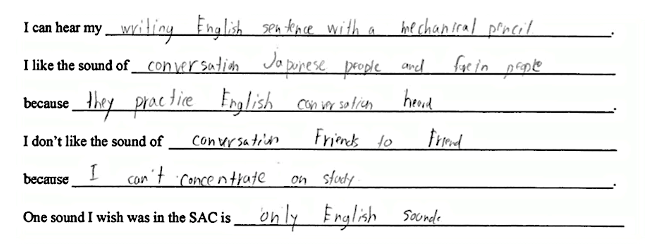 I can hear my writing English sentence with a mechanical pencil.
I like the sound of conversation Japanese people and forein people
because they practice English conversation heard.
I don't like the sound of conversation Friends to Friend
because I can't concentrate on study.
One sound I wish was in the SAC is only English sound.